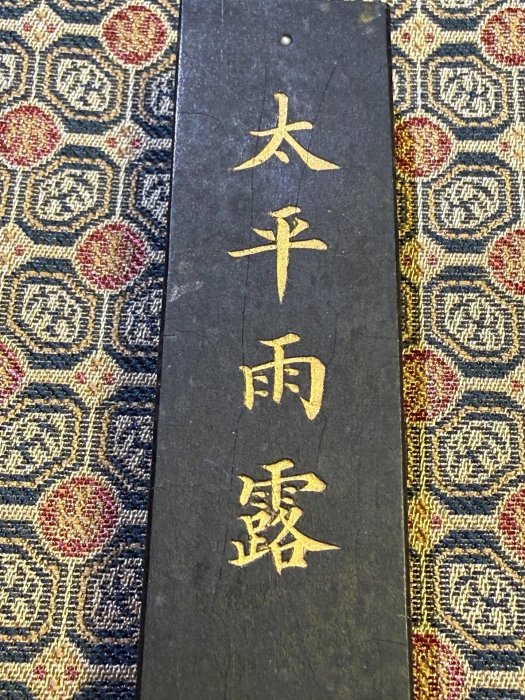 太平雨露